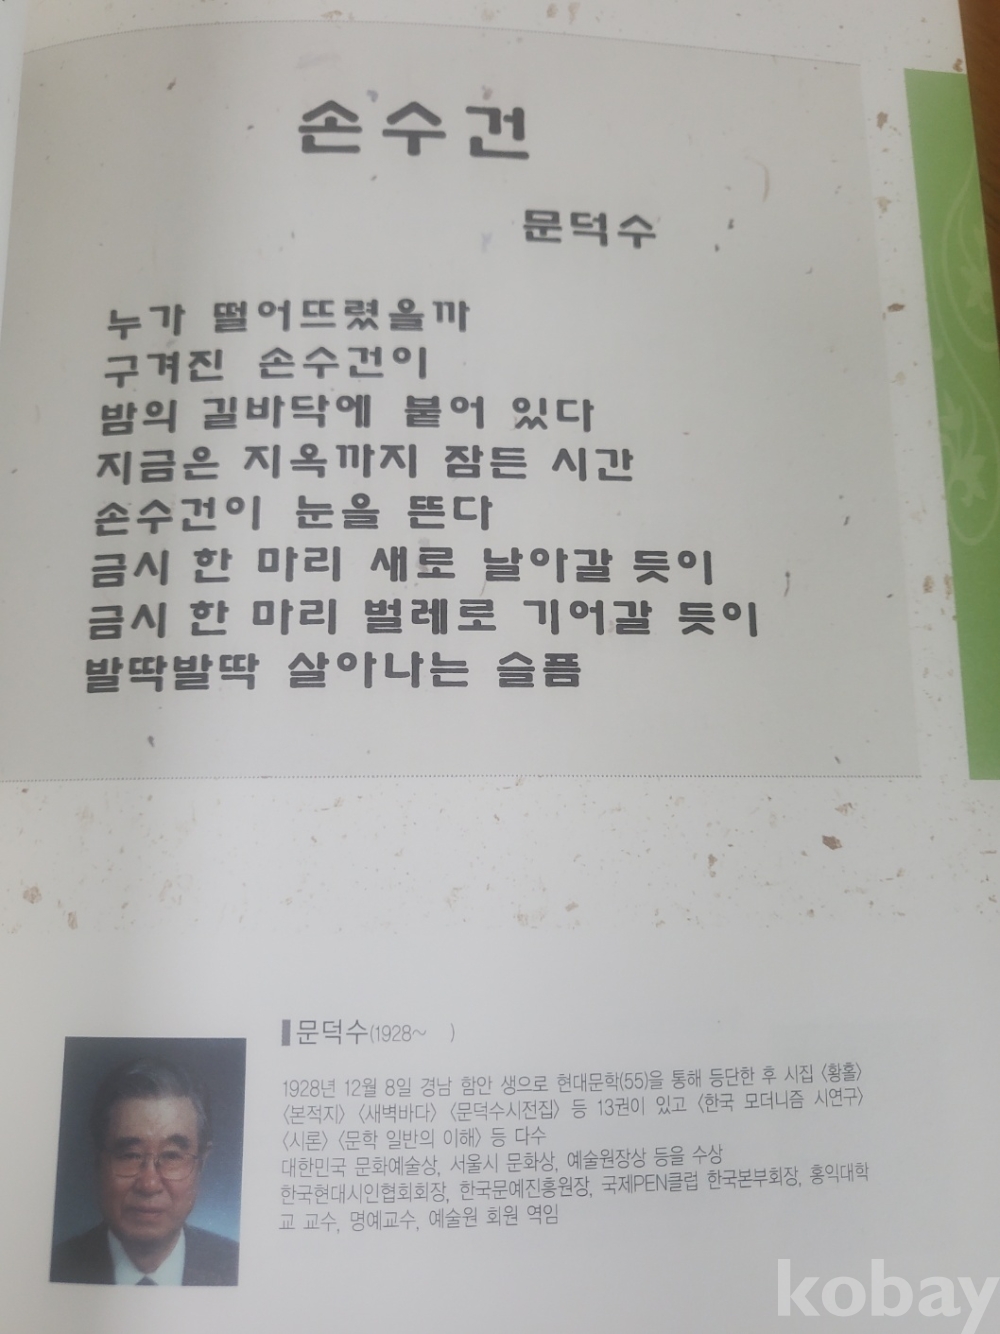 손수건
문덕수
누가 떨어뜨렸을까
구겨진 손수건이
밤의 길바닥에 붙어 있다
지금은 지옥까지 잠든 시간
손수건이 눈을 뜬다
금시 한 마리 새로 날아갈 듯이
금시 한 마리 벌레로 기어갈 듯이
발딱발딱 살아나는 슬픔
문덕수(1928~ )
1928년 12월 8일 경남 함안 생으로 현대문학(55)을 통해 등단한 후 시집 〈황홀〉
〈본적지〉 〈새벽바다〉 〈문덕수시전집〉 등 13권이 있고 〈한국 모더니즘 시연구〉
〈시론〉 〈문학 일반의 이해〉 등 다수
대한민국 문화예술상, 서울시 문화상, 예술원장상 등을 수상
한국현대시인협회회장, 한국문예진흥원장, 국제PEN클럽 한국본부회장, 홍익대학
교 교수, 명예교수, 예술원 회원 역임
kobay